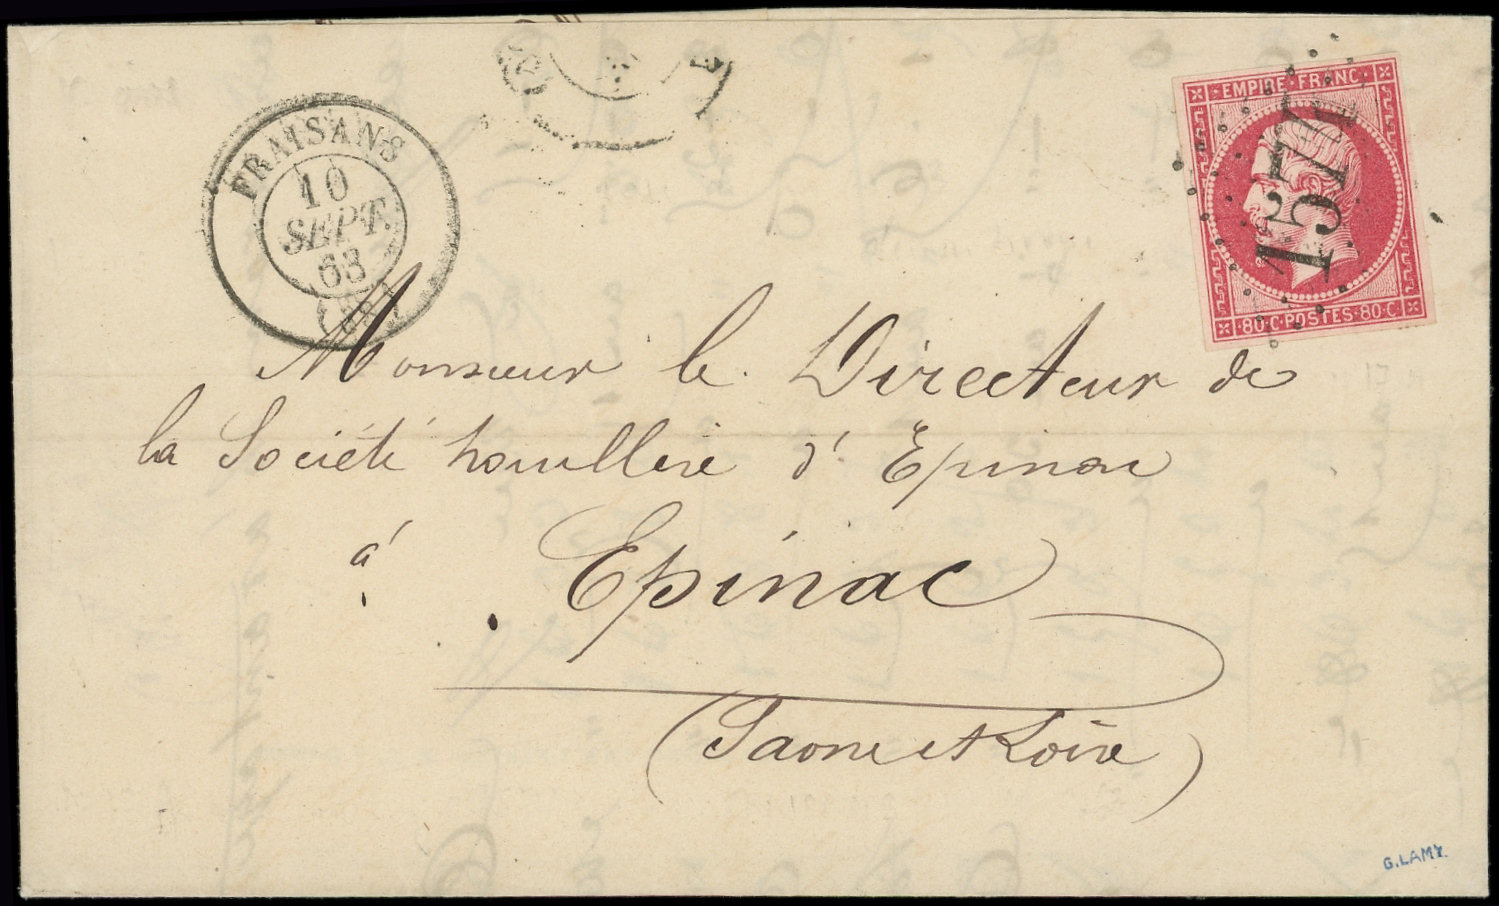 FRAISANS
10
SEPT.
63
(38)
EMPIRE·FRANC·
1577
·80·C·POSTES·80·C·
Monsieur le Directeur de
la Société houillère d'Epinac
à
Epinac
(Saone et Loire)
G.LAMY.